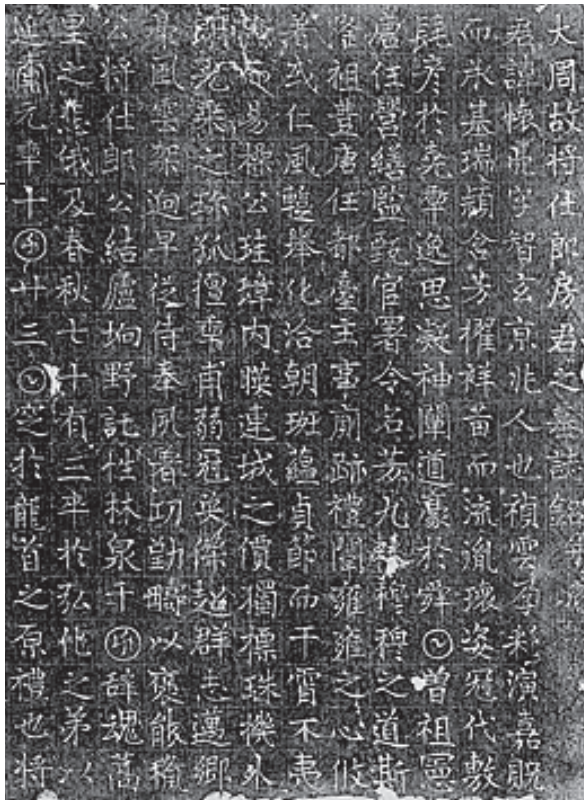 大周故將仕郎房君之墓誌銘并序
君諱懷亮字智玄京兆人也禎雲孕彩演嘉貺
而永基瑞穎含芳櫂祥苗而流胤瓌姿冠代敷
髦彥於堯𠡦逸思凝神闡道慶於舜𡆠曾祖冥
唐任營繕監甄官署令名芳九棘穆穆之道斯
洽祖豊唐任都臺主事前跡禮闈雍雍之心攸
著或仁風蠅舉化洽朝班蘊貞節而干霄不夷
而易操公珪璋內暎連城之價獨標珠機外
朗光乘之珎孤擅𠡦甫弱冠英傑超群志邁鄉
風雲架迥早從侍奉夙昏切勤疇以褒能稅
公將仕郎公結廬坰野託性林泉千囝辭魂萬
里之悲俄及春秋七十有三𠡦於弘化之第以
延𡕀元𠡦十囝廿三𡆠窆於龍首之原禮也將